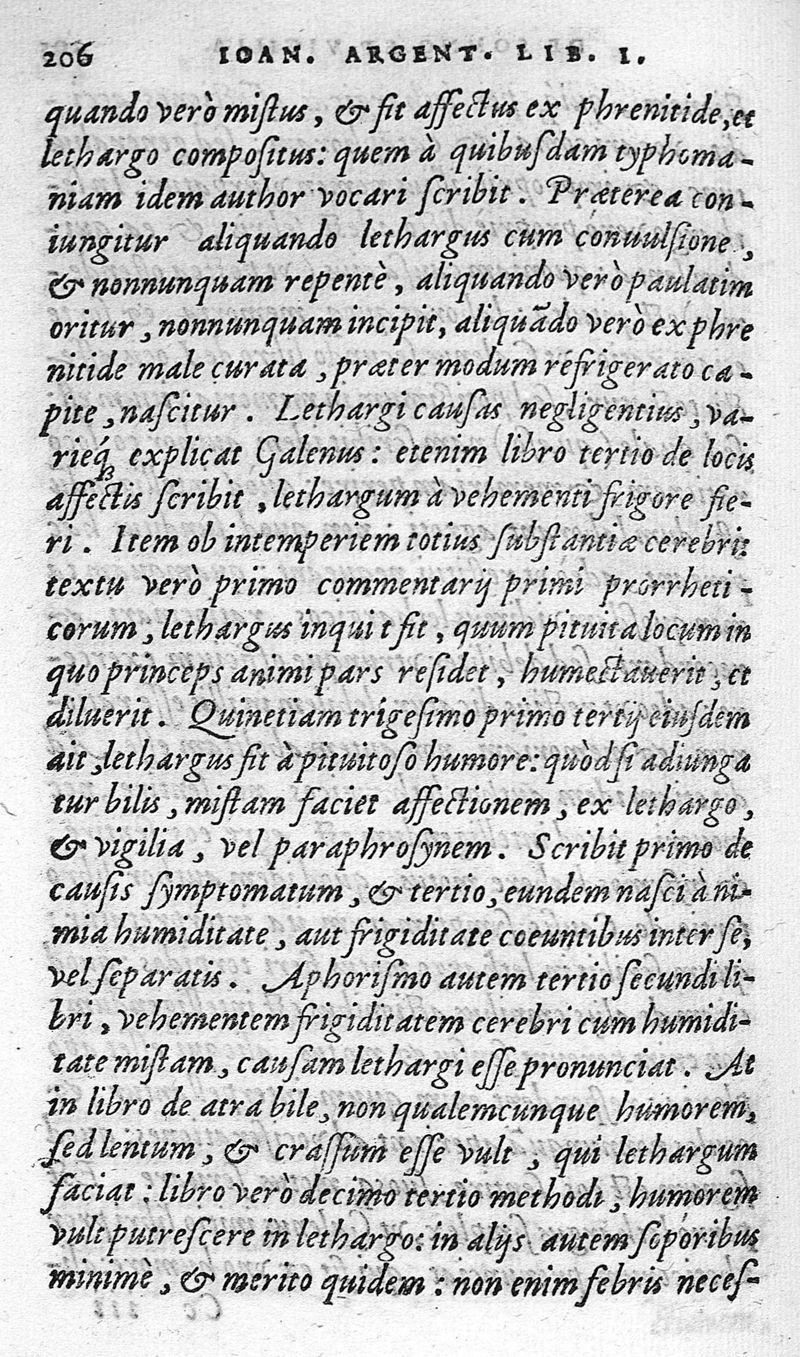 206 IOAN. ARGENT. LIB. I.
quando verò miſtus, & fit affectus ex phrenitide, et
lethargo compoſitus: quem à quibuſdam typhoma-
niam idem author vocari ſcribit. Præterea con-
iungitur aliquando lethargus cum conuulſione,
& nonnunquam repentè, aliquando verò paulatim
oritur, nonnunquam incipit, aliquãdo verò ex phre
nitide male curata, præter modum refrigerato ca-
pite, naſcitur. Lethargi cauſas negligentius, va-
rieq́ꝫ explicat Galenus: etenim libro tertio de locis
affectis ſcribit, lethargum à vehementi frigore fie-
ri. Item ob intemperiem totius ſubſtantiæ cerebri:
textu verò primo commentarij primi prorrheti-
corum, lethargus inquit fit, quum pituita locum in
quo princeps animi pars reſidet, humectauerit, et
diluerit. Quinetiam trigeſimo primo tertij eiuſdem
ait, lethargus fit à pituitoſo humore: quòd ſi adiunga
tur bilis, miſtam faciet affectionem, ex lethargo,
& vigilia, vel paraphroſynem. Scribit primo de
cauſis ſymptomatum, & tertio, eundem naſci à ni-
mia humiditate, aut frigiditate coeuntibus inter ſe,
vel ſeparatis. Aphoriſmo autem tertio ſecundi li-
bri, vehementem frigiditatem cerebri cum humidi-
tate miſtam, cauſam lethargi eſſe pronunciat. At
in libro de atra bile, non qualemcunque humorem,
ſed lentum, & craſſum eſſe vult, qui lethargum
faciat: libro verò decimo tertio methodi, humorem
vult putreſcere in lethargo: in alijs autem ſoporibus
minimè, & merito quidem: non enim febris neceſ-